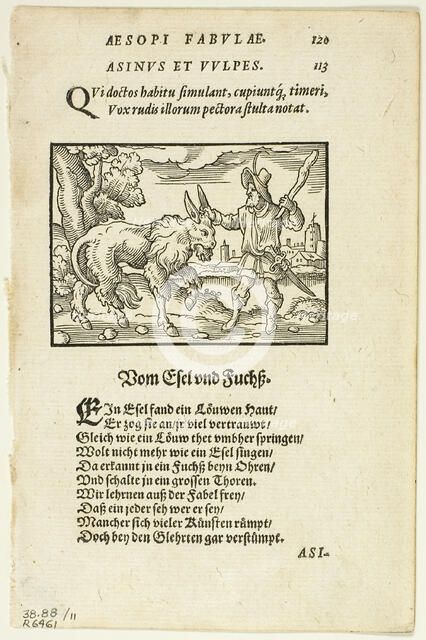 AESOPI FABVLAE. 120
ASINVS ET VVLPES. 113
QVi doctos habitu simulant, cupiuntq́; timeri,
Vox rudis illorum pectora stulta notat.
Vom Esel vnd Fuchß.
EIn Esel fand ein Löuwen Haut/
Er zog sie an/jr viel vertrauwt/
Gleich wie ein Löuw thet vmbher springen/
Wolt nicht mehr wie ein Esel singen/
Da erkannt jn ein Fuchß beyn Ohren/
Vnd schalte jn ein grossen Thoren.
Wir lehrnen auß der Fabel frey/
Daß ein jeder seh wer er sey/
Mancher sich vieler Künsten rümpt/
Doch bey den Glehrten gar verstümpt.
ASI-
38.88/11
R6461